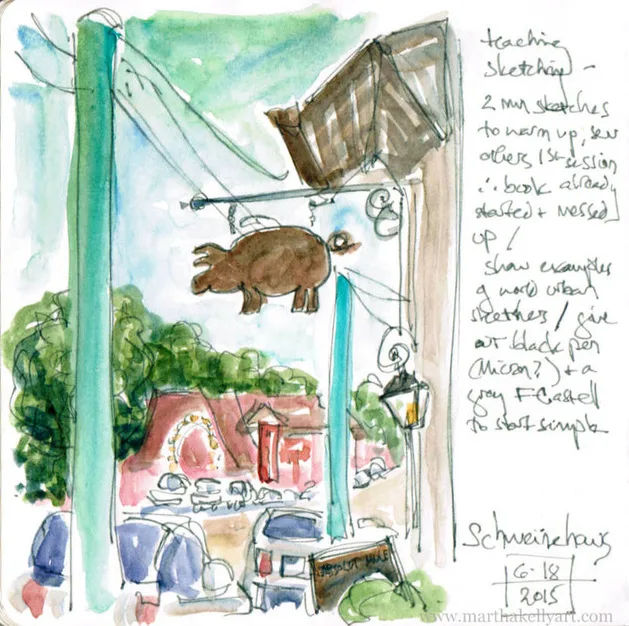 teaching
sketching –
2 min sketches
to warm up, sev
others 1st session
∴ book already
started + messed
up /
show examples
g world urban
sketchers / give
out black pen
(Micron?) + a
gray F-Castell
to start simple
Schweinehaus
6-18
2015
ABSOLUT MULE
www.marthakellyart.com